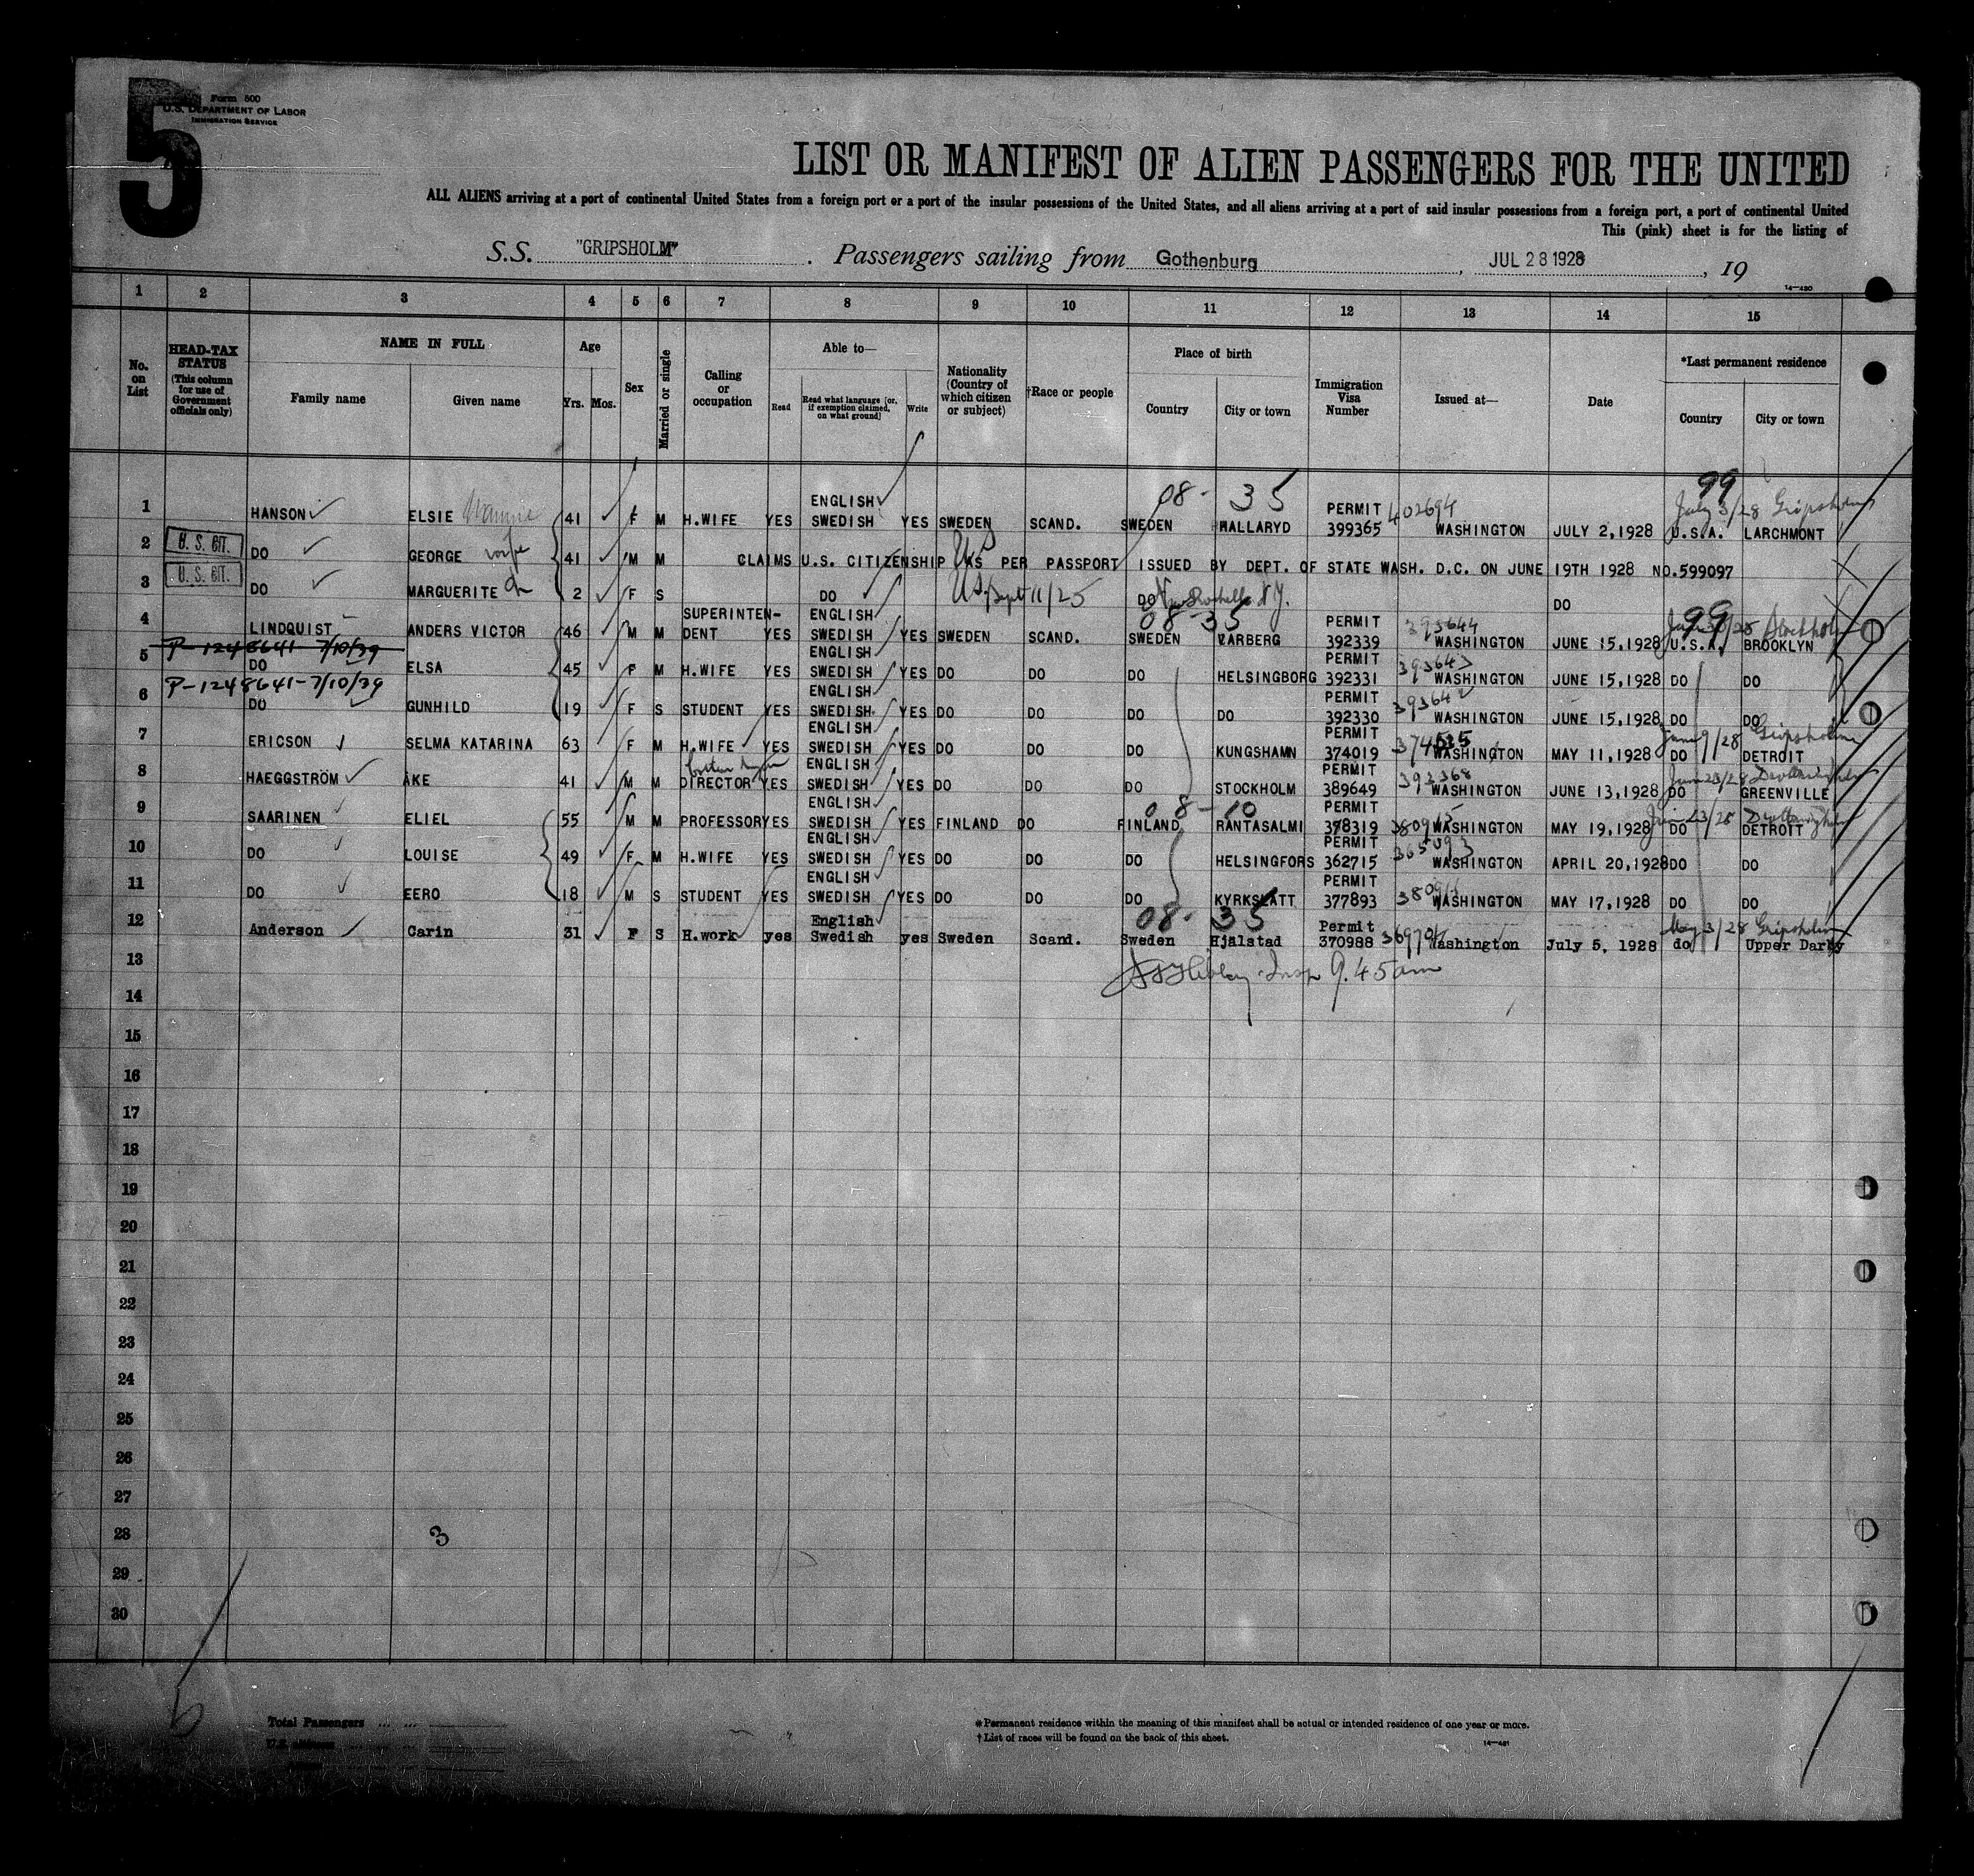 5
Form 500
U.S. DEPARTMENT OF LABOR
IMMIGRATION SERVICE
LIST OR MANIFEST OF ALIEN PASSENGERS FOR THE UNITED
ALL ALIENS arriving at a port of continental United States from a foreign port or a port of the insular possessions of the United States, and all aliens arriving at a port of said insular possessions from a foreign port, a port of continental United
This (pink) sheet is for the listing of
S.S. "GRIPSHOLM" . Passengers sailing from Gothenburg , JUL 28 1928 , 19
14—430
1 2 3 4 5 6 7 8 9 10 11 12 13 14 15
No. on List
HEAD-TAX STATUS (This column for use of Government officials only)
NAME IN FULL
Family name Given name
Age
Yrs. Mos.
Sex
Married or single
Calling or occupation
Able to—
Read Read what language [or, if exemption claimed, on what ground] Write
Nationality (Country of which citizen or subject)
†Race or people
Place of birth
Country City or town
Immigration Visa Number
Issued at—
Date
*Last permanent residence
Country City or town
08- 35 99
ENGLISH PERMIT 402694 July 3/28 Gripsholm
1 HANSON ELSIE 41 F M H.WIFE YES SWEDISH YES SWEDEN SCAND. SWEDEN HALLARYD 399365 WASHINGTON JULY 2,1928 U.S.A. LARCHMONT
2 U. S. CIT. DO GEORGE 41 M M CLAIMS U.S. CITIZENSHIP AS PER PASSPORT ISSUED BY DEPT. OF STATE WASH. D.C. ON JUNE 19TH 1928 NO.599097
3 U. S. CIT. DO MARGUERITE 2 F S DO U.S. Sept 11/25 DO New Rochelle N.Y. DO
SUPERINTEN- ENGLISH 08-35 PERMIT 393644 99
4 LINDQUIST ANDERS VICTOR 46 M M DENT YES SWEDISH YES SWEDEN SCAND. SWEDEN VARBERG 392339 WASHINGTON JUNE 15,1928 U.S.A. BROOKLYN
P-1248641 7/10/39 ENGLISH PERMIT 393643
5 DO ELSA 45 F M H.WIFE YES SWEDISH YES DO DO DO HELSINGBORG 392331 WASHINGTON JUNE 15,1928 DO DO
P-1248641-7/10/39 ENGLISH PERMIT 393642
6 DO GUNHILD 19 F S STUDENT YES SWEDISH YES DO DO DO DO 392330 WASHINGTON JUNE 15,1928 DO DO
ENGLISH PERMIT June 9/28 Gripsholm
7 ERICSON SELMA KATARINA 63 F M H.WIFE YES SWEDISH YES DO DO DO KUNGSHAMN 374019 WASHINGTON MAY 11,1928 DO DETROIT
ENGLISH PERMIT 393368
8 HAEGGSTRÖM ÅKE 41 M M DIRECTOR YES SWEDISH YES DO DO DO STOCKHOLM 389649 WASHINGTON JUNE 13,1928 DO GREENVILLE
ENGLISH 08-10 PERMIT
9 SAARINEN ELIEL 55 M M PROFESSOR YES SWEDISH YES FINLAND DO FINLAND RANTASALMI 378319 WASHINGTON MAY 19,1928 DO DETROIT
ENGLISH PERMIT
10 DO LOUISE 49 F M H.WIFE YES SWEDISH YES DO DO DO HELSINGFORS 362715 WASHINGTON APRIL 20,1928 DO DO
ENGLISH PERMIT
11 DO EERO 18 M S STUDENT YES SWEDISH YES DO DO DO KYRKSLÄTT 377893 WASHINGTON MAY 17,1928 DO DO
English 08- 35 Permit May 3/28 Gripsholm
12 Anderson Carin 31 F S H.work yes Swedish yes Sweden Scand. Sweden Hjälstad 370988 Washington July 5, 1928 do Upper Darby
13 Insp 9.45am
14
15
16
17
18
19
20
21
22
23
24
25
26
27
28 3
29
30
Total Passengers
U.S. citizens
*Permanent residence within the meaning of this manifest shall be actual or intended residence of one year or more.
†List of races will be found on the back of this sheet.
14—421